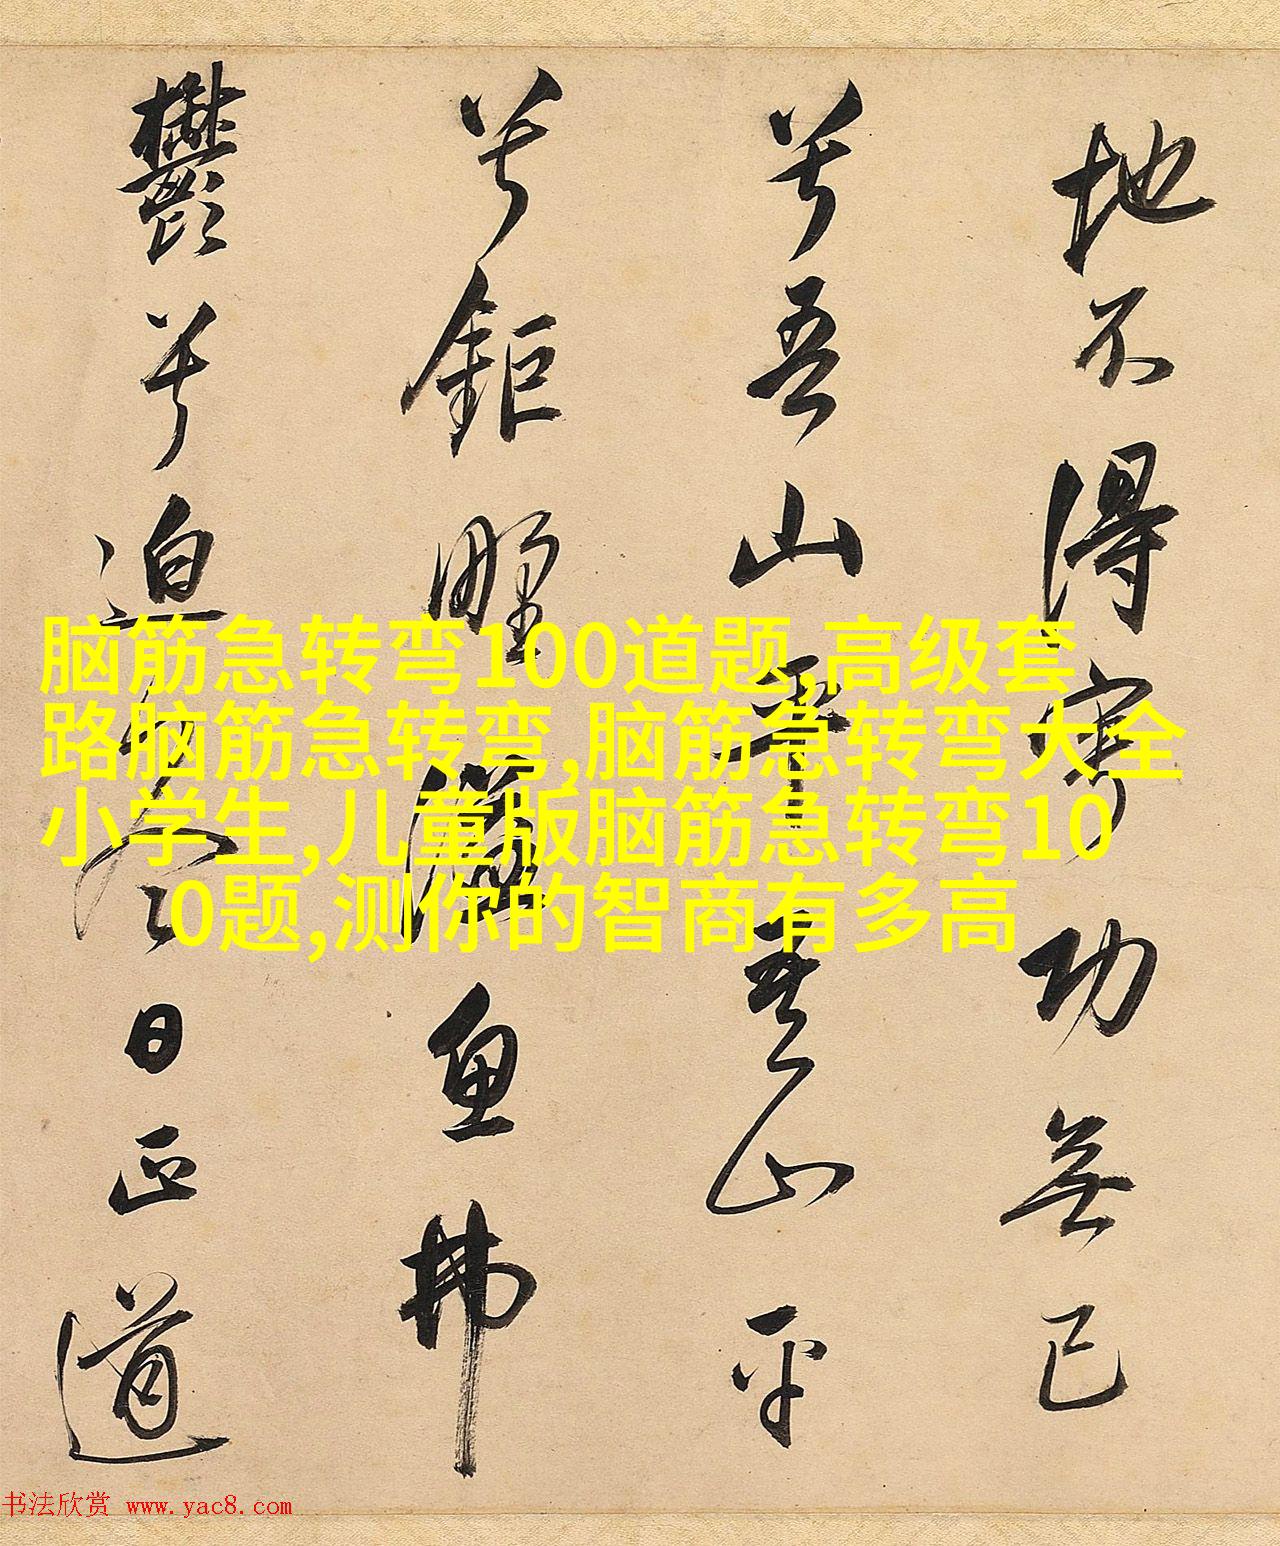 地不得寧功無已
兮吾山平吾山平
兮鉅野溢魚弗
鬱兮迫冬日正道
脑筋急转弯100道题,高级套
路脑筋急转弯,脑筋急转弯大全
小学生,儿童版脑筋急转弯10
0题,测你的智商有多高
书法欣赏 www.yac8.com